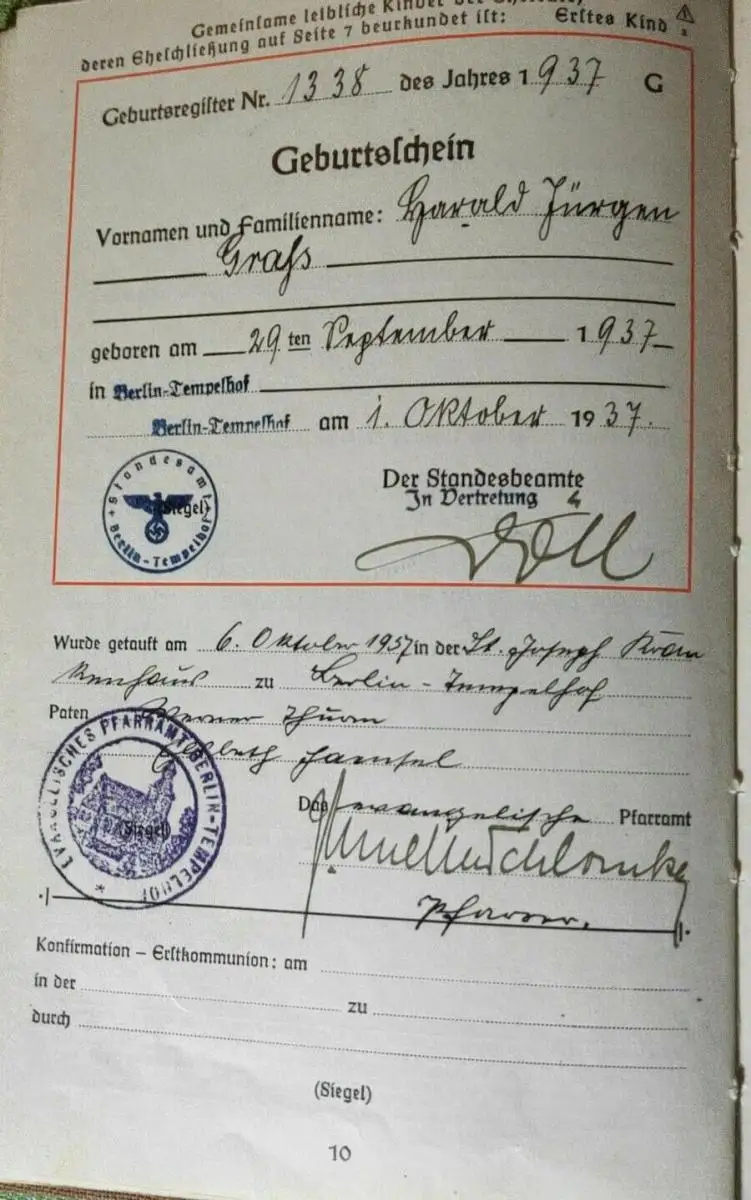 Gemeinsame leibliche Kinder der Eheleute,
deren Eheschließung auf Seite 7 beurkundet ist: Erstes Kind
Geburtsregister Nr. 1338 des Jahres 1937 G
Geburtsschein
Vornamen und Familienname: Harald Jürgen
Graß
geboren am 29ten September 1937
in Berlin-Tempelhof
Berlin-Tempelhof am 1. Oktober 1937.
Standesamt
Berlin-Tempelhof
(Siegel)
Der Standesbeamte
In Vertretung
Döll
Wurde getauft am 6. Oktober 1937 in der St. Joseph Kran
kenhaus zu Berlin-Tempelhof
Paten Werner Thurm
Elsbeth
EVANGELISCHES PFARRAMT BERLIN-TEMPELHOF
(Siegel)
Das evangelische Pfarramt
Pfarrer.
Konfirmation – Erstkommunion: am
in der zu
durch
(Siegel)
10